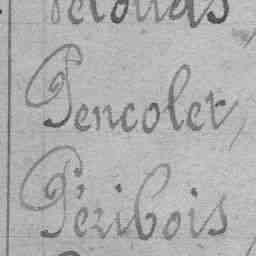 Pencolet,
Péribois,